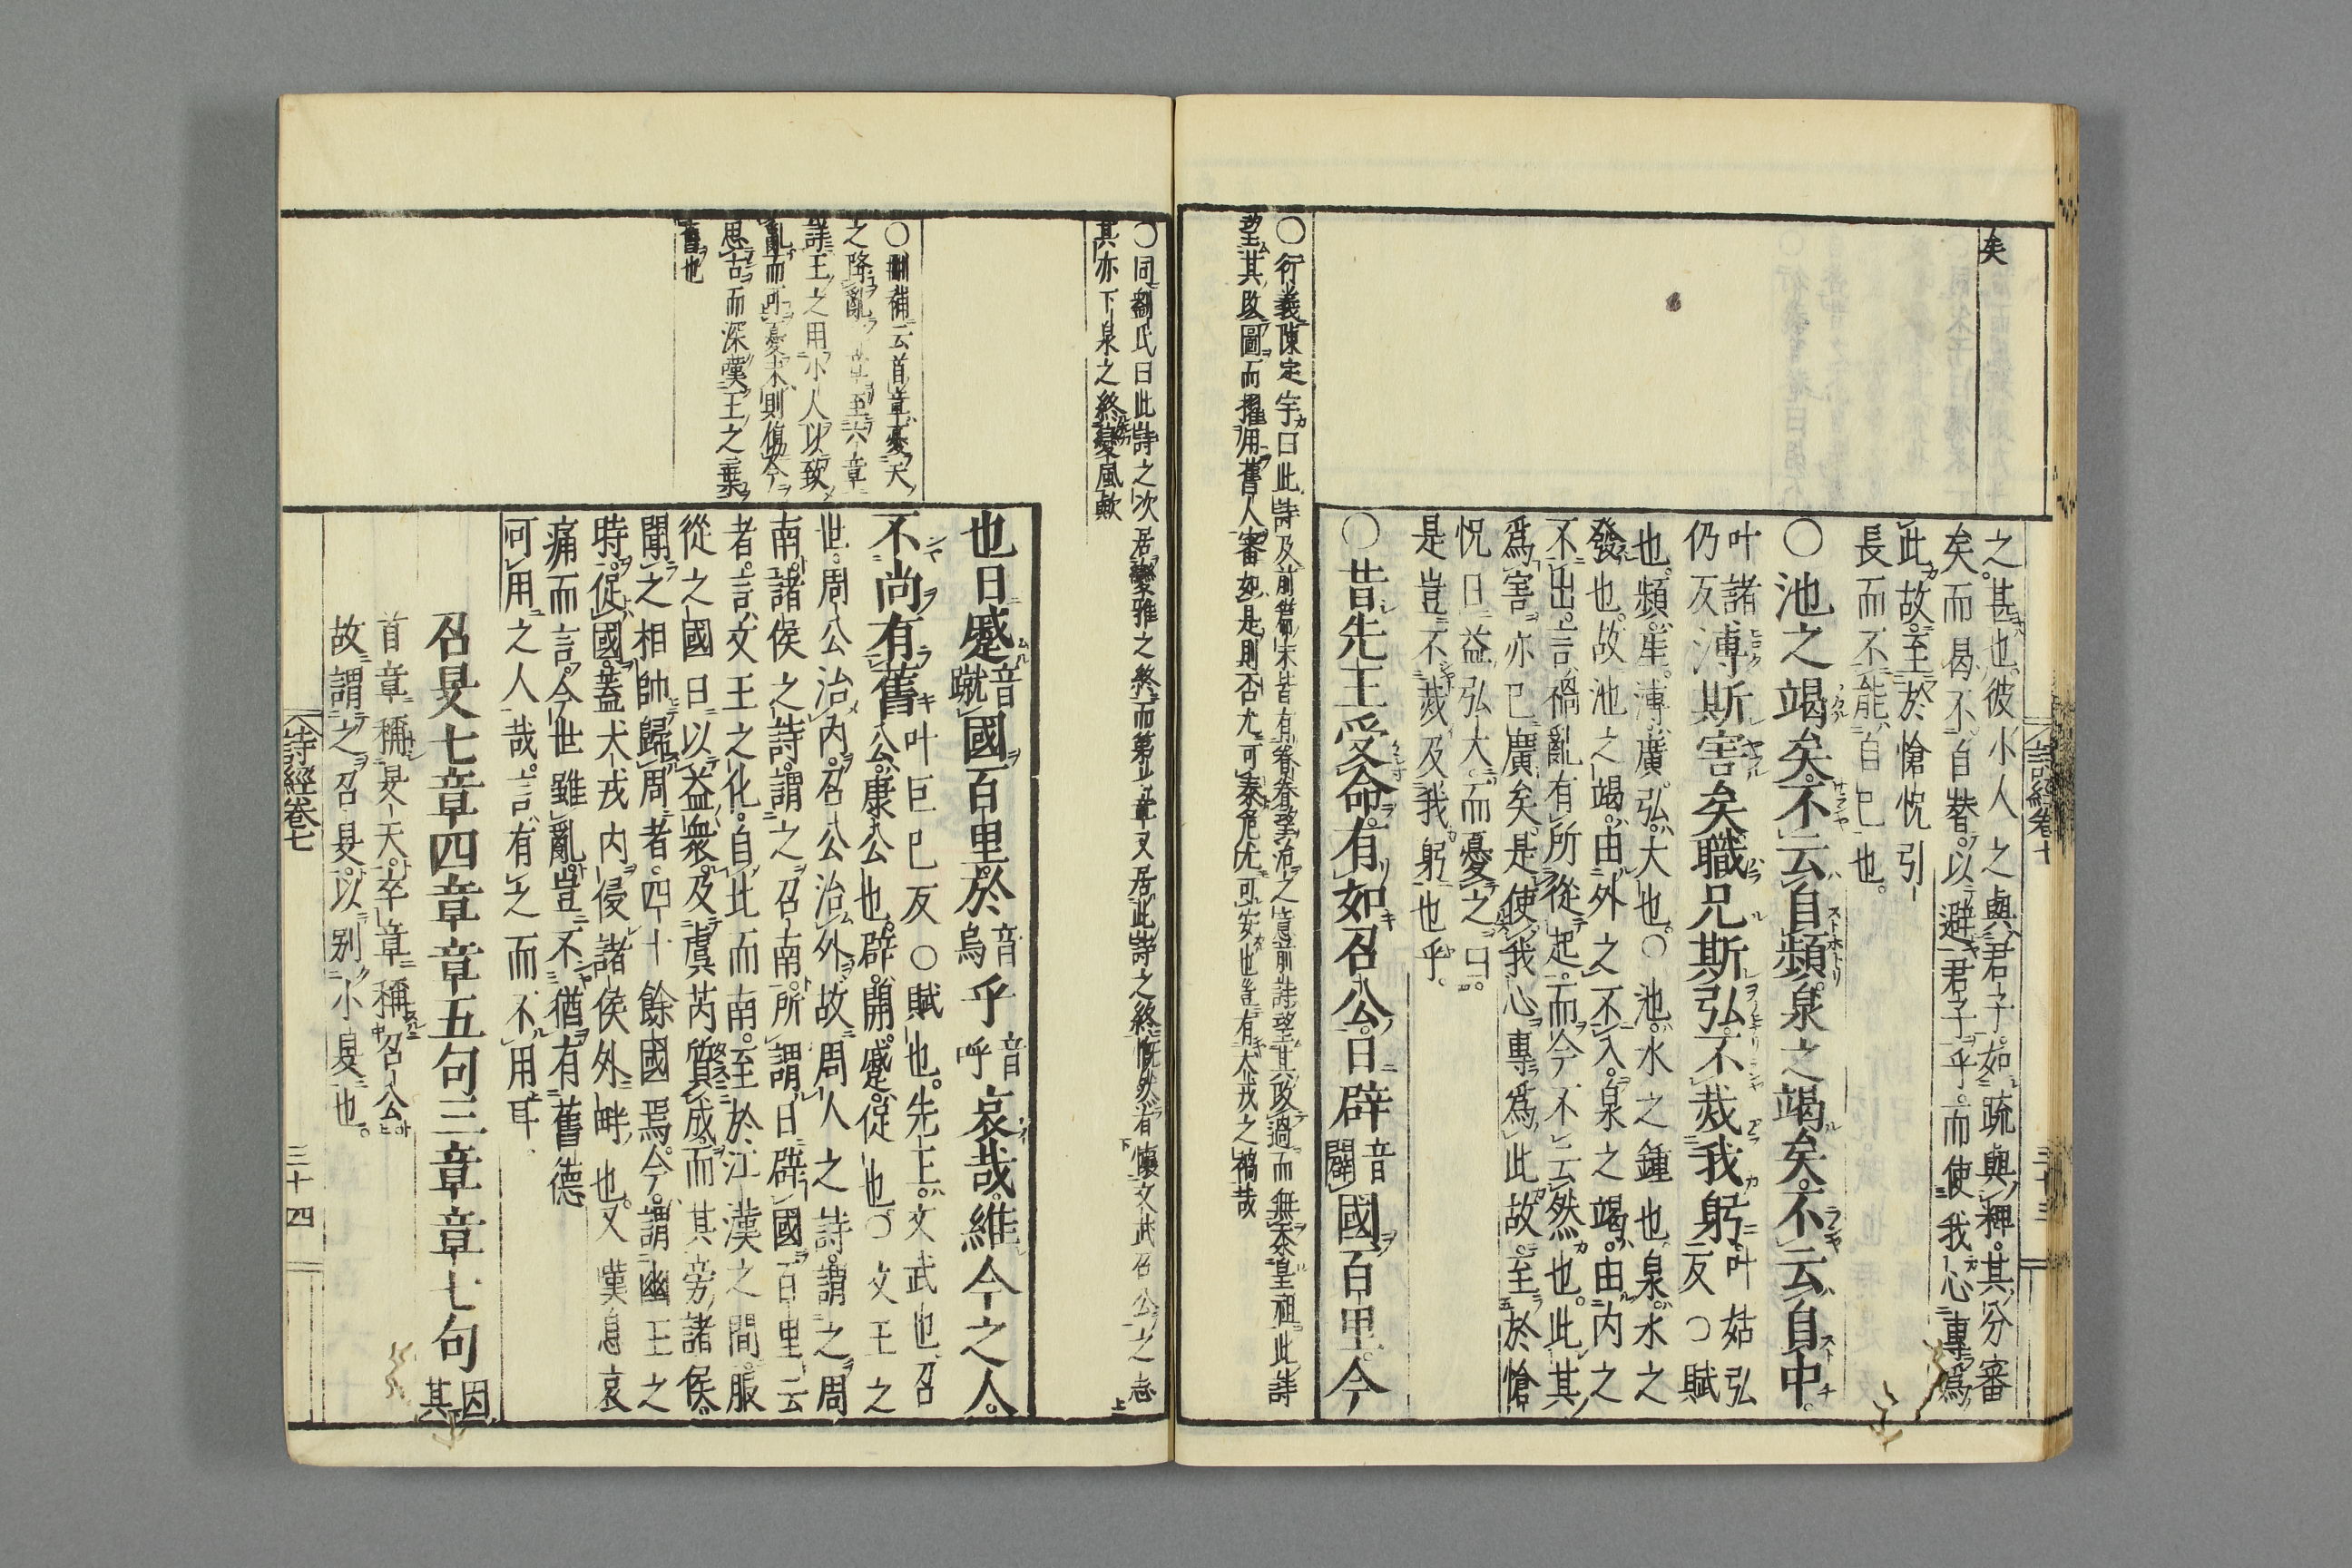 矣
之甚也彼小人之與君子如疏與粺其分審
矣而曷不自替以避君子乎而使我心專爲
此故至於愴怳引
長而不能自已也
○池之竭矣不云自頻泉之竭矣不云自中
叶諸仍反溥斯害矣職兄斯弘不烖我躬叶姑弘反○賦
也頻崖溥廣弘大也○池水之鍾也泉水之
發也故池之竭由外之不入泉之竭由内之
不出言禍亂有所從起而今不云然也此其
爲害亦已廣矣是使我心專爲此故至於愴
怳日益弘大而憂之曰
是豈不烖及我躬也乎
○昔先王受命有如召公日辟音闢國百里今
○行義陳定宇曰此詩及前篇末皆有眷眷望治之意前詩望其改過而無忝皇祖此詩
望其改圖而擢用舊人審如是則否尤可泰危尤可安也豈有犬戎之禍哉
○同劉氏曰此詩之次居變雅之終而第七章又居此詩之終慨然有懷文武召公之志
其亦下泉之終變風歟
也日蹙音蹴國百里於音烏乎音呼哀哉維今之人
不尚有舊叶巨已反○賦也先王文武也召
公康公也辟開蹙促也○文王之
世周公治内召公治外故周人之詩謂之周
南諸侯之詩謂之召南所謂日辟國百里云
者言文王之化自此而南至於江漢之間服
從之國日以益衆及虞芮質成而其旁諸侯
聞之相帥歸周者四十餘國焉今謂幽王之
時促國蓋犬戎内侵諸侯外畔也又嘆息哀
痛而言今世雖亂豈不猶有舊德
可用之人哉言有之而不用耳
召旻七章四章章五句三章章七句因其
首章稱旻天卒章稱召公
故謂之召旻以别小旻也
○刪補云首章憂天
之降亂二章至六章
詳王之用小人以致
亂而可憂末則傷今
思古而深嘆王之棄
舊也
詩經卷七 三十四